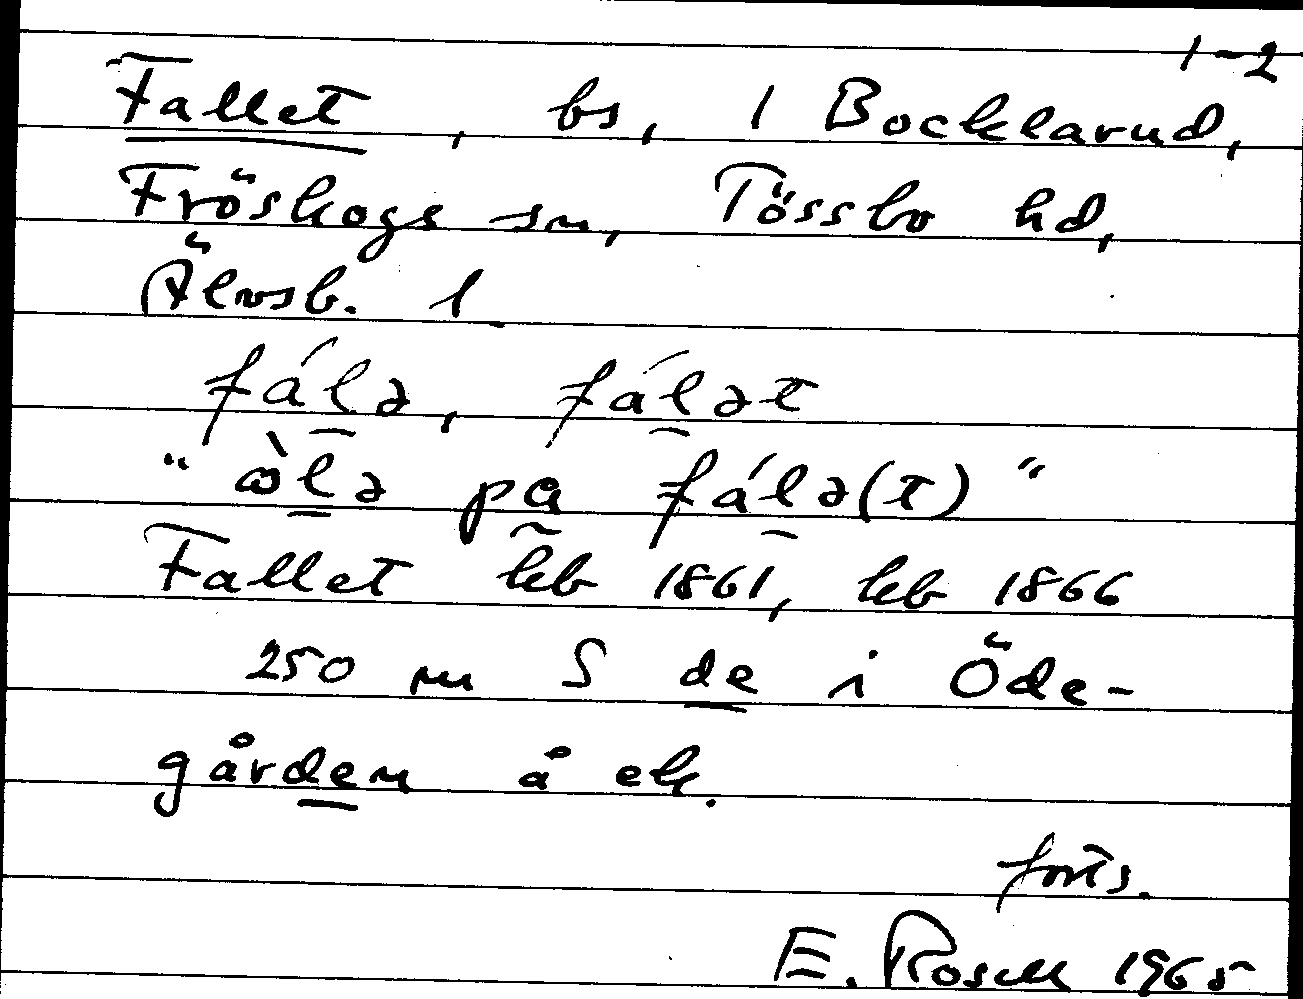 1-2
Fallet, bs, 1 Bocklarud,
Fröskogs sn, Tössbo hd,
Älvsb. l
fál̲ə, fál̲ət
"ɷ̀l̲ə pɑ̃ fál̲ə(t)"
Fallet hkb 1861, kb 1866
250 m S de i Öde-
gården å ek.
forts.
E. Rosell 1965